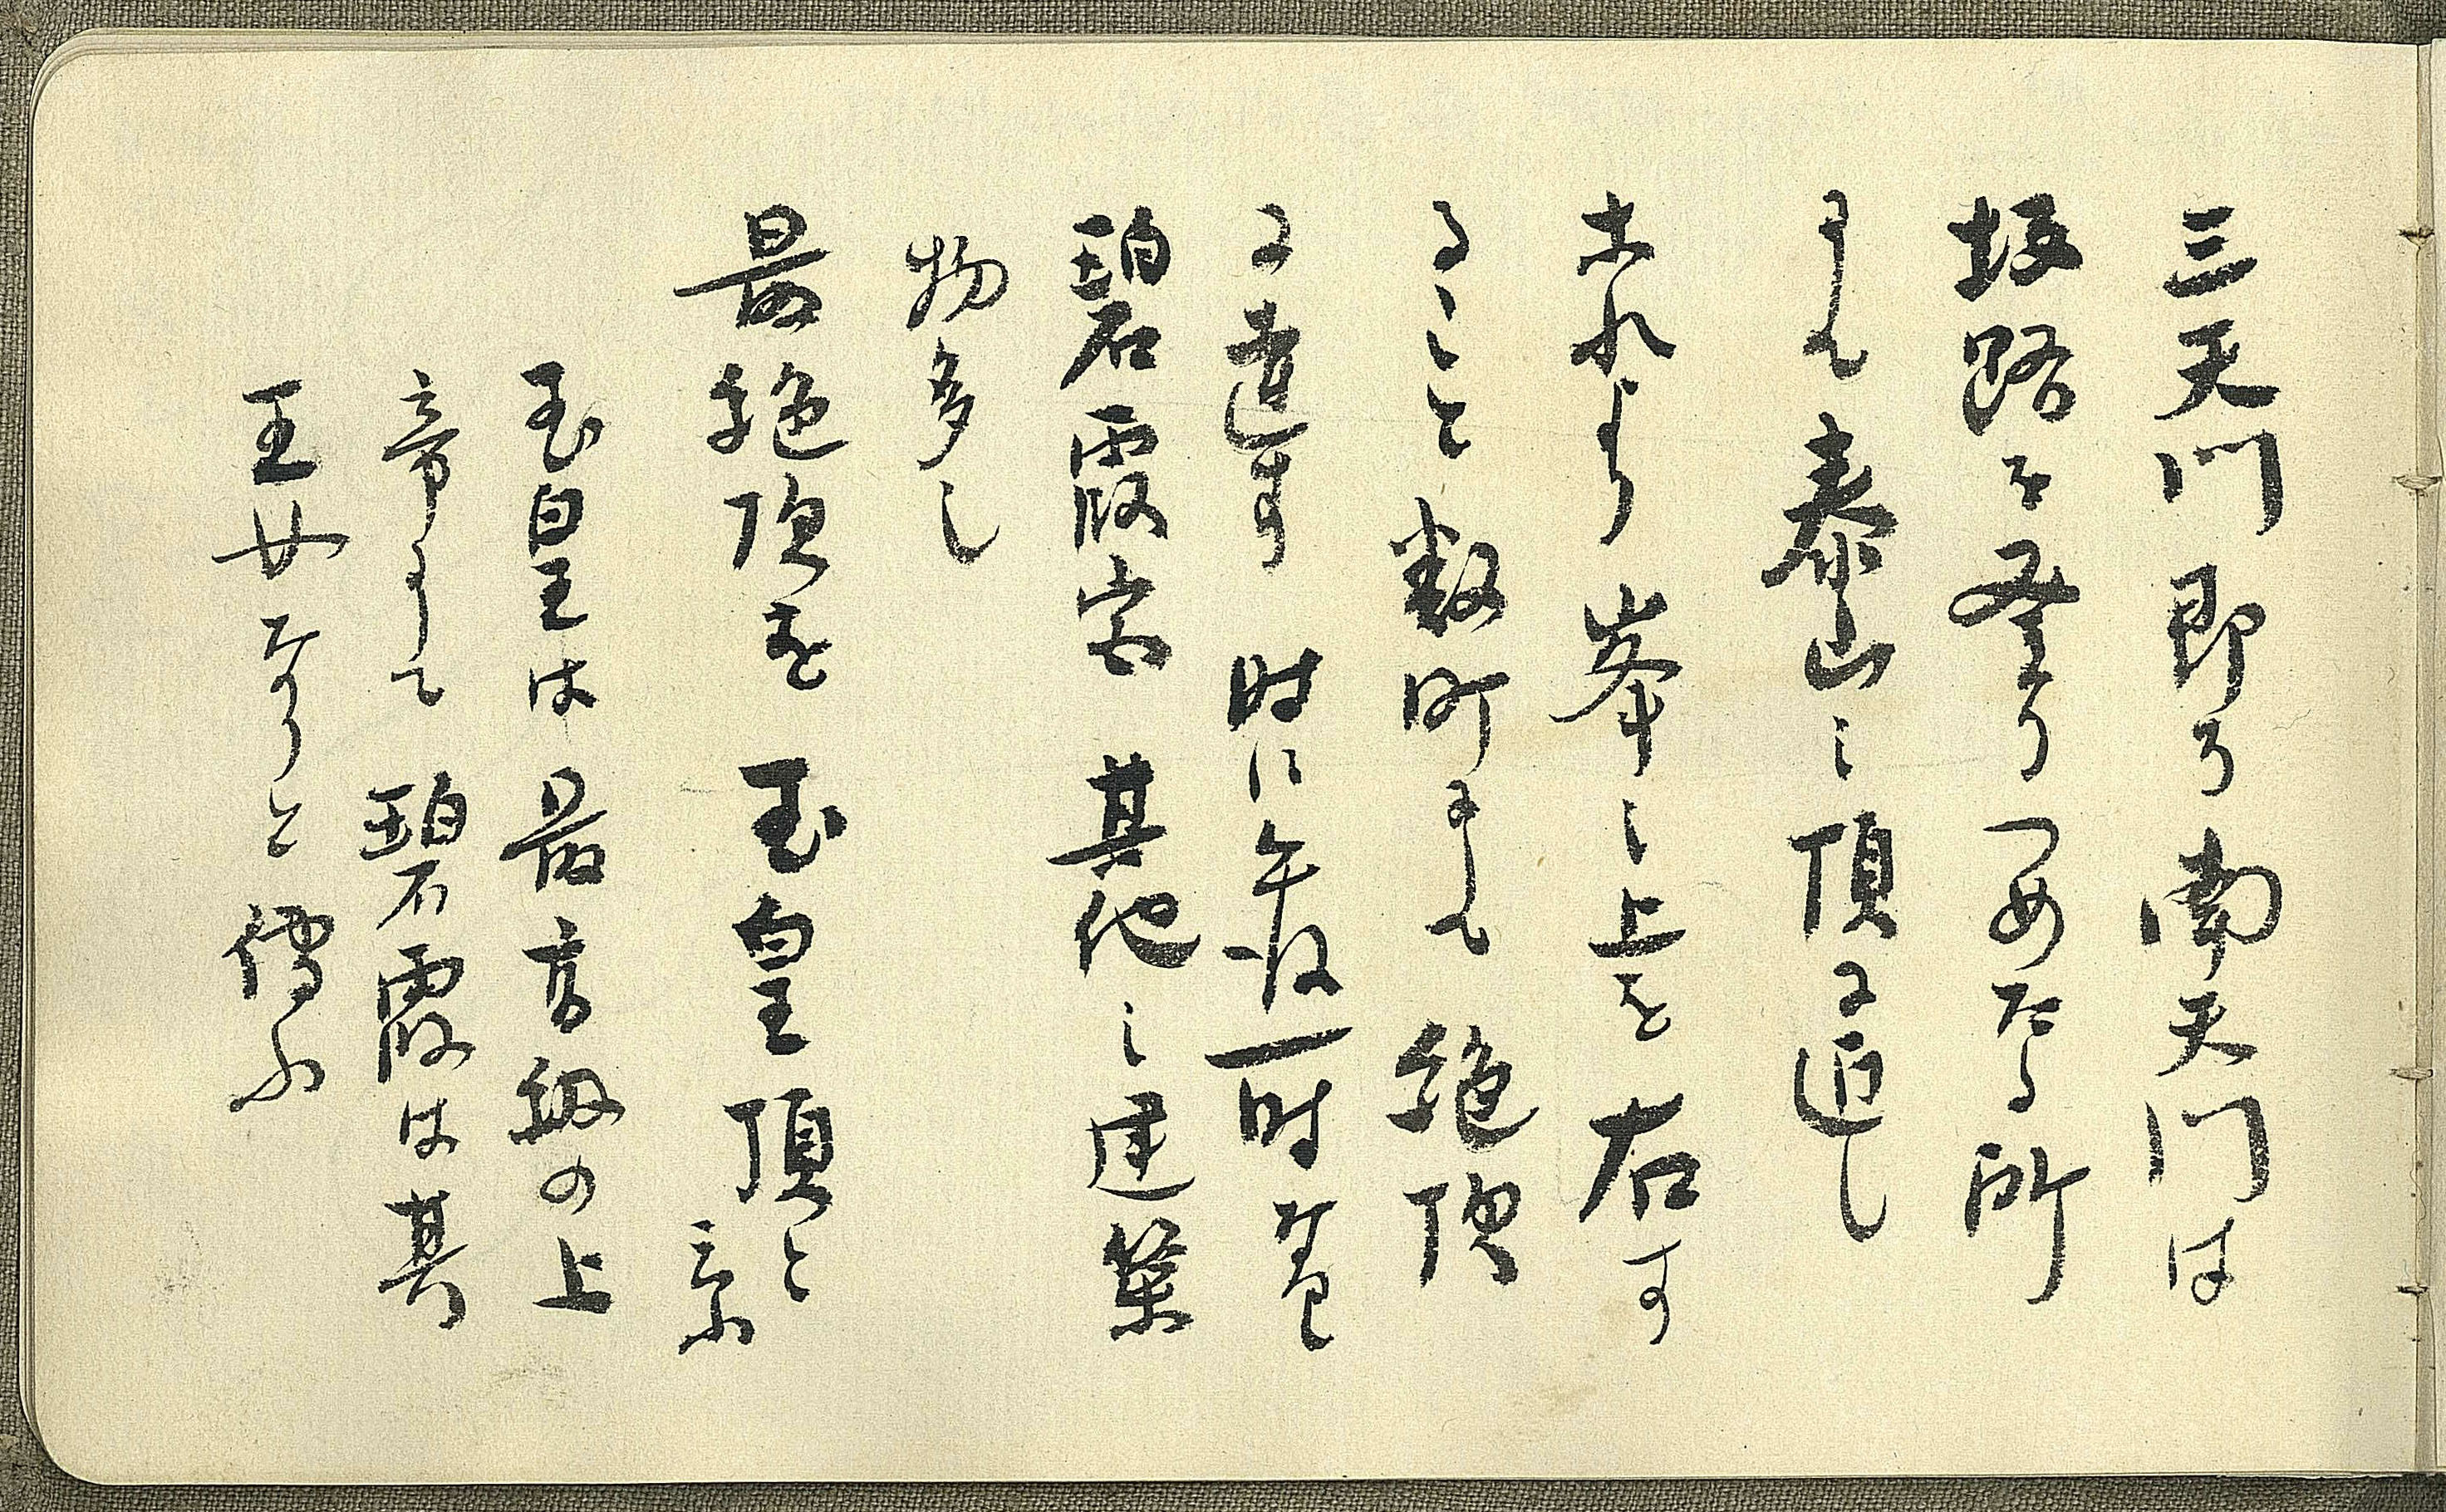 三天門即ち南天門は
坂路を登りつめたる所
にして泰山之頂に近し
これより峯之上を右す
ること数町にして絶頂
に達す 時に午後一時なりし
碧霞宮其他之建築
物多し
最絶頂を玉皇頂と云ふ
玉皇は最高級の上
帝にして碧霞は其
玉女なりと傳ふ